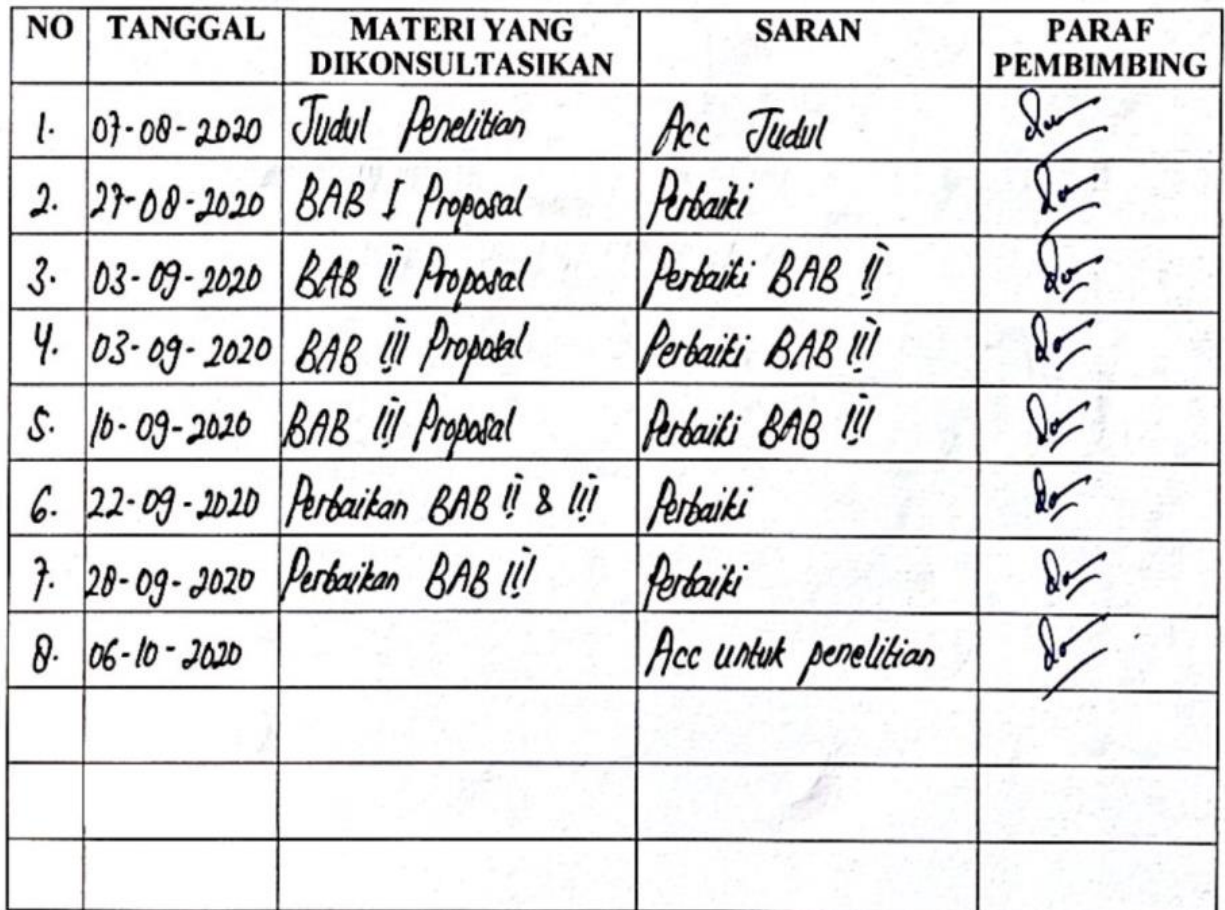 NO TANGGAL MATERI YANG DIKONSULTASIKAN SARAN PARAF PEMBIMBING
1. 07-08-2020 Judul Penelitian Acc Judul
2. 27-08-2020 BAB I Proposal Perbaiki
3. 03-09-2020 BAB II Proposal Perbaiki BAB II
4. 03-09-2020 BAB III Proposal Perbaiki BAB III
5. 10-09-2020 BAB III Proposal Perbaiki BAB III
6. 22-09-2020 Perbaikan BAB II & III Perbaiki
7. 28-09-2020 Perbaikan BAB III Perbaiki
8. 06-10-2020 Acc untuk penelitian